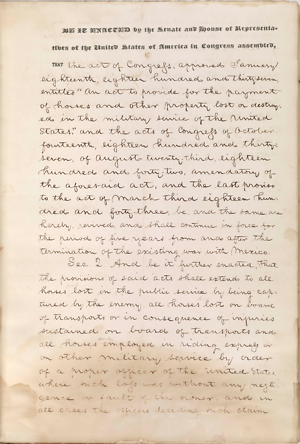 BE IT ENACTED by the Senate and House of Representa-
tives of the United States of America in Congress assembled,
THAT the act of Congress, approved January
eighteenth, eighteen hundred and thirty seven,
entitled "An act to provide for the payment
of horses and other property lost or destroy-
ed in the military service of the United
States," and the acts of Congress of October
fourteenth, eighteen hundred and thirty-
seven, of August twenty-third, eighteen
hundred and forty-two, amendatory of
the aforesaid act, and the last proviso
to the act of March third eighteen hun-
dred and forty-three, be, and the same are
hereby, revived and shall continue in force for
the period of five years from and after the
termination of the existing war with Mexico.
Sec. 2. And be it further enacted, That
the provisions of said acts shall extend to all
horses lost in the public service by being cap-
tured by the enemy, all horses lost on board
of transports or in consequence of injuries
sustained on board of transports and
all horses employed in riding express or
on other military service by order
of a proper officer of the United States,
where such loss was without any negli-
gence or fault of the owner: and in
all cases the officer deciding such claim